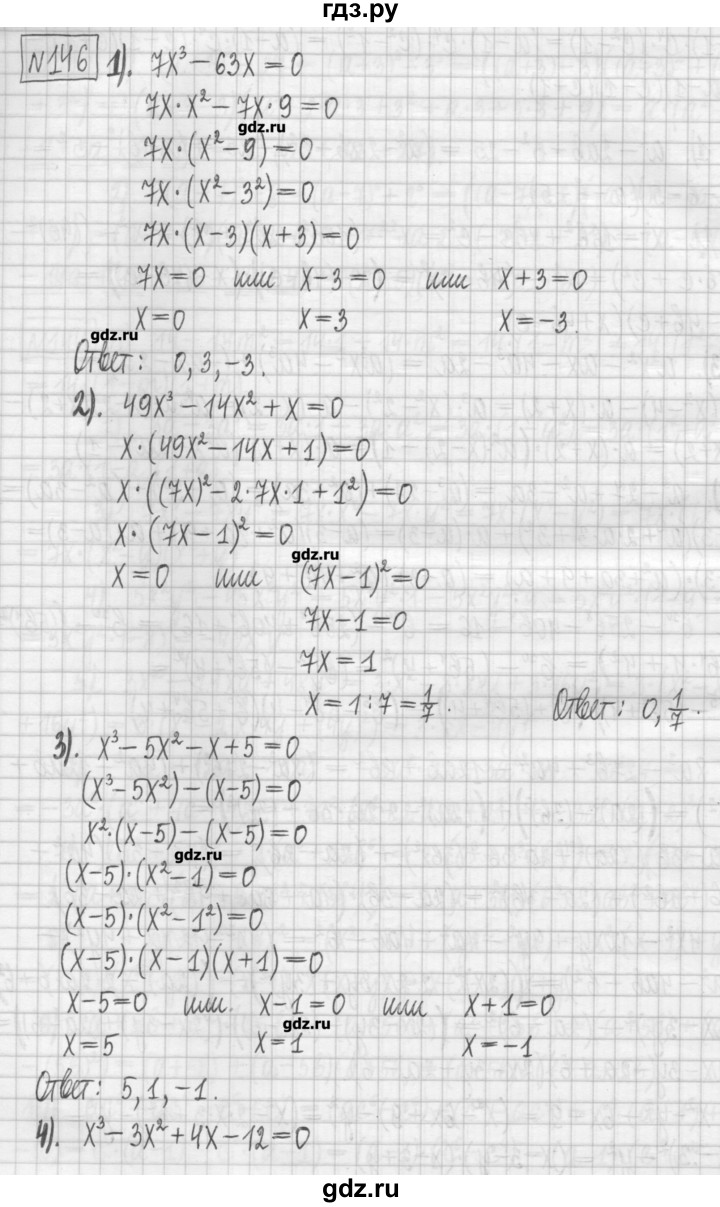 гдз.ру
№146 1). 7x³ − 63x = 0
7x·x² − 7x·9 = 0
gdz.ru
7x·(x² − 9) = 0
7x·(x² − 3²) = 0
7x·(x − 3)(x + 3) = 0
7x = 0 или x − 3 = 0 или x + 3 = 0
x = 0 x = 3 x = −3.
gdz.ru
Ответ: 0, 3, −3.
2). 49x³ − 14x² + x = 0
x·(49x² − 14x + 1) = 0
x·((7x)² − 2·7x·1 + 1²) = 0
x·(7x − 1)² = 0
gdz.ru
x = 0 или (7x − 1)² = 0
7x − 1 = 0
7x = 1
x = 1 : 7 = 1/7. Ответ: 0, 1/7.
3). x³ − 5x² − x + 5 = 0
(x³ − 5x²) − (x − 5) = 0
x²·(x − 5) − (x − 5) = 0
gdz.ru
(x − 5)·(x² − 1) = 0
(x − 5)·(x² − 1²) = 0
(x − 5)·(x − 1)(x + 1) = 0
x − 5 = 0 или x − 1 = 0 или x + 1 = 0
gdz.ru
x = 5 x = 1 x = −1
Ответ: 5, 1, −1.
4). x³ − 3x² + 4x − 12 = 0
gdz.ru